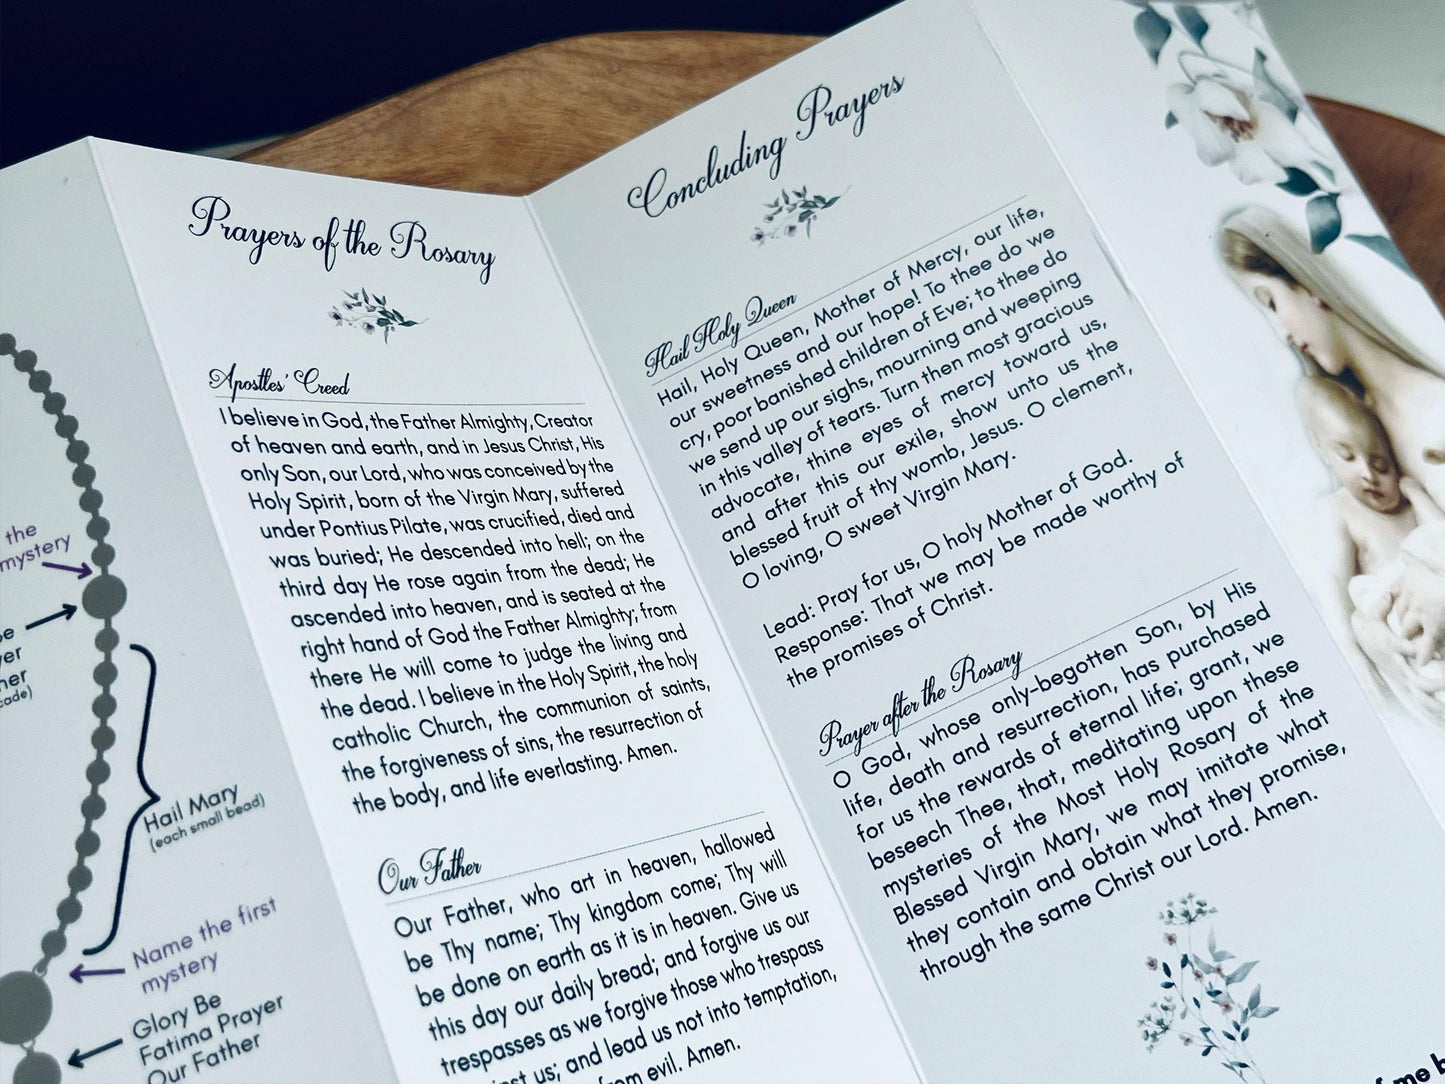 the
mystery
Hail Mary
(each small bead)
Name the first
mystery
Glory Be
Fatima Prayer
Our Father
Prayers of the Rosary
Apostles' Creed
I believe in God, the Father Almighty, Creator
of heaven and earth, and in Jesus Christ, His
only Son, our Lord, who was conceived by the
Holy Spirit, born of the Virgin Mary, suffered
under Pontius Pilate, was crucified, died and
was buried; He descended into hell; on the
third day He rose again from the dead; He
ascended into heaven, and is seated at the
right hand of God the Father Almighty; from
there He will come to judge the living and
the dead. I believe in the Holy Spirit, the holy
catholic Church, the communion of saints,
the forgiveness of sins, the resurrection of
the body, and life everlasting. Amen.
Our Father
Our Father, who art in heaven, hallowed
be Thy name; Thy kingdom come; Thy will
be done on earth as it is in heaven. Give us
this day our daily bread; and forgive us our
trespasses as we forgive those who trespass
us; and lead us not into temptation,
evil. Amen.
Concluding Prayers
Hail Holy Queen
Hail, Holy Queen, Mother of Mercy, our life,
our sweetness and our hope! To thee do we
cry, poor banished children of Eve; to thee do
we send up our sighs, mourning and weeping
in this valley of tears. Turn then most gracious
advocate, thine eyes of mercy toward us,
and after this our exile, show unto us the
blessed fruit of thy womb, Jesus. O clement,
O loving, O sweet Virgin Mary.
Lead: Pray for us, O holy Mother of God.
Response: That we may be made worthy of
the promises of Christ.
Prayer after the Rosary
O God, whose only-begotten Son, by His
life, death and resurrection, has purchased
for us the rewards of eternal life; grant, we
beseech Thee, that, meditating upon these
mysteries of the Most Holy Rosary of the
Blessed Virgin Mary, we may imitate what
they contain and obtain what they promise,
through the same Christ our Lord. Amen.